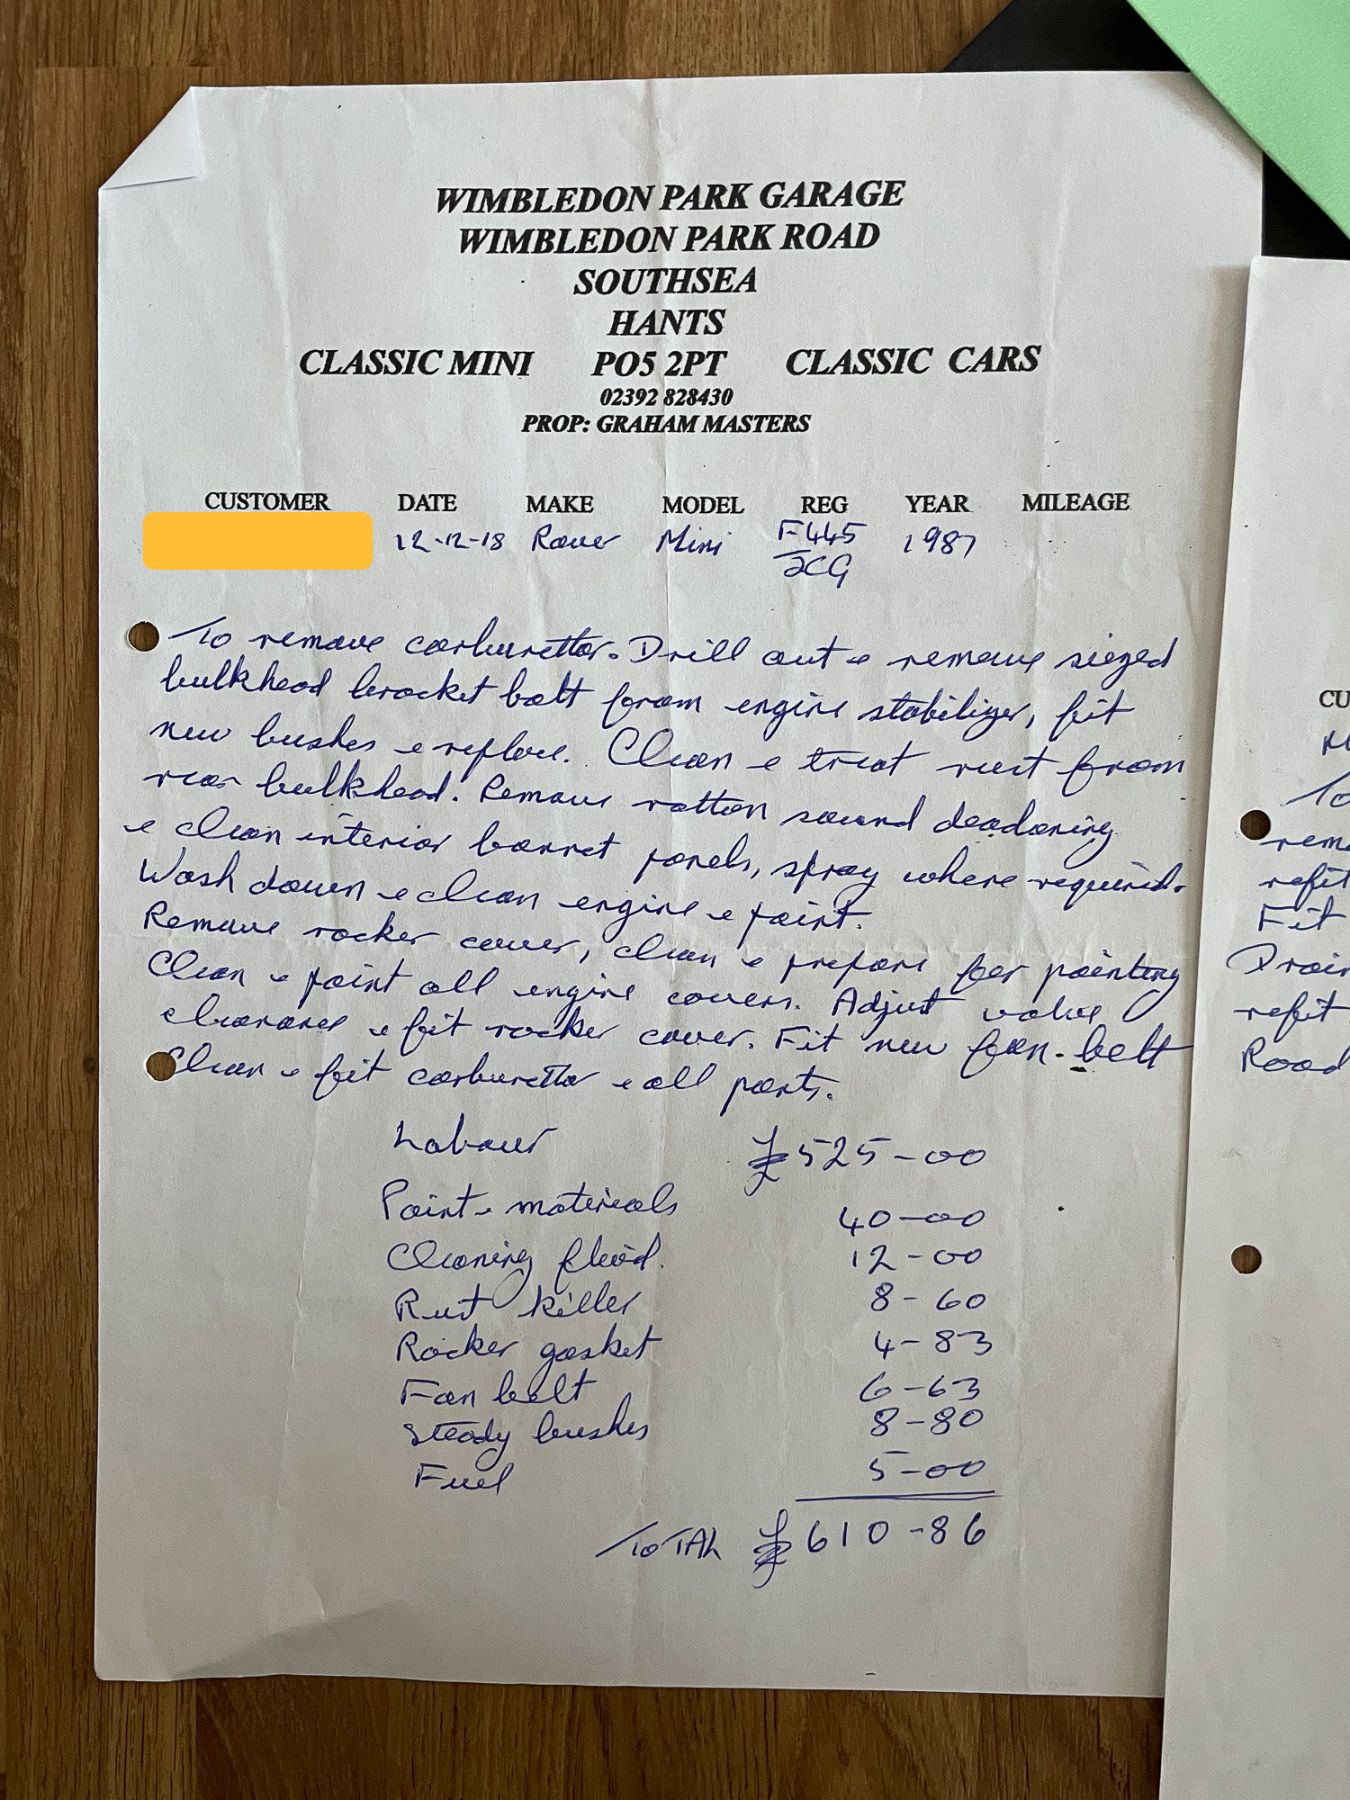 WIMBLEDON PARK GARAGE
WIMBLEDON PARK ROAD
SOUTHSEA
HANTS
CLASSIC MINI PO5 2PT CLASSIC CARS
02392 828430
PROP: GRAHAM MASTERS
CUSTOMER DATE MAKE MODEL REG YEAR MILEAGE
12-12-18 Rover Mini F445 1987
JCG
To remove carburettor. Drill out & remove siezed
bulkhead bracket bolt from engine stabilizer, fit
new bushes & replace. Clean & treat rust from
rear bulkhead. Remove rotten sound deadoning
& clean interior bonnet panels, spray where required.
Wash down & clean engine & paint.
Remove rocker cover, clean & prepare for painting
Clean & paint all engine covers. Adjust valve
clearance & fit rocker cover. Fit new fan-belt
Clean & fit carburettor & all parts.
Labour £525-00
Paint & materials 40-00
Cleaning fluid. 12-00
Rust killer 8-60
Rocker gasket 4-83
Fan belt 6-63
Steady bushes 8-80
Fuel 5-00
TOTAL £610-86
CU
To
rem
refit
Fit
Drain
refit
Road